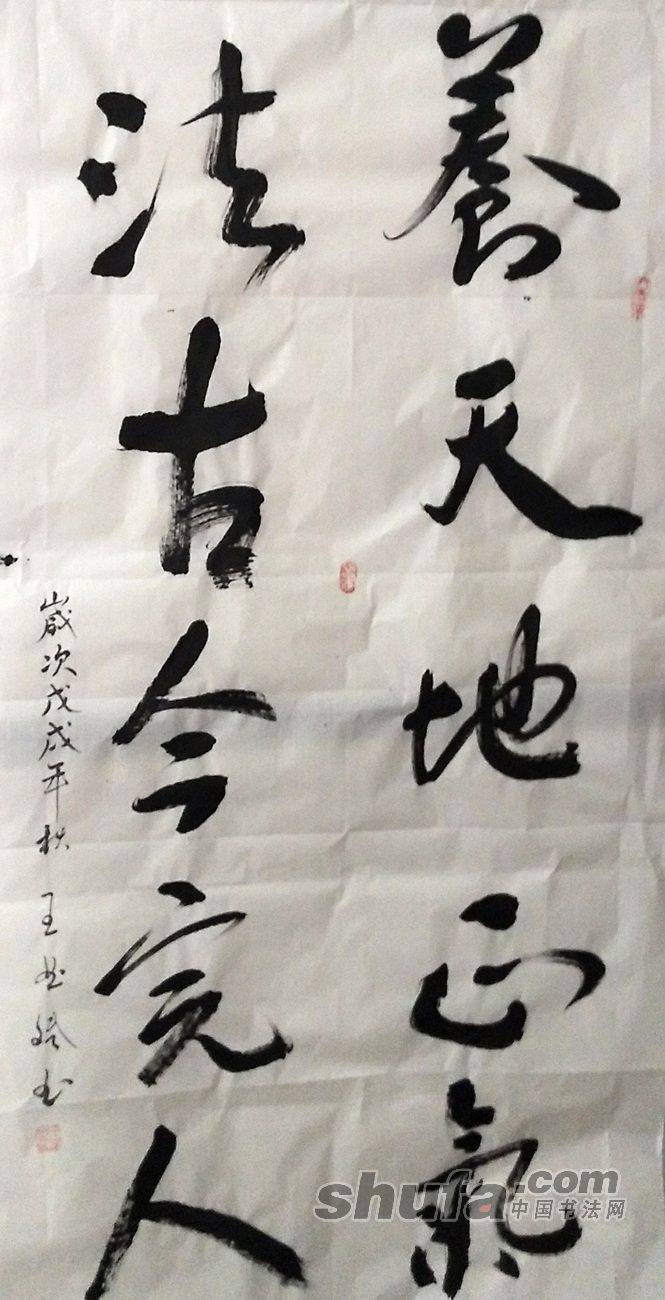 養天地正氣
法古今完人
歲次戊戌年秋 王 书
shufa.com
中国书法网